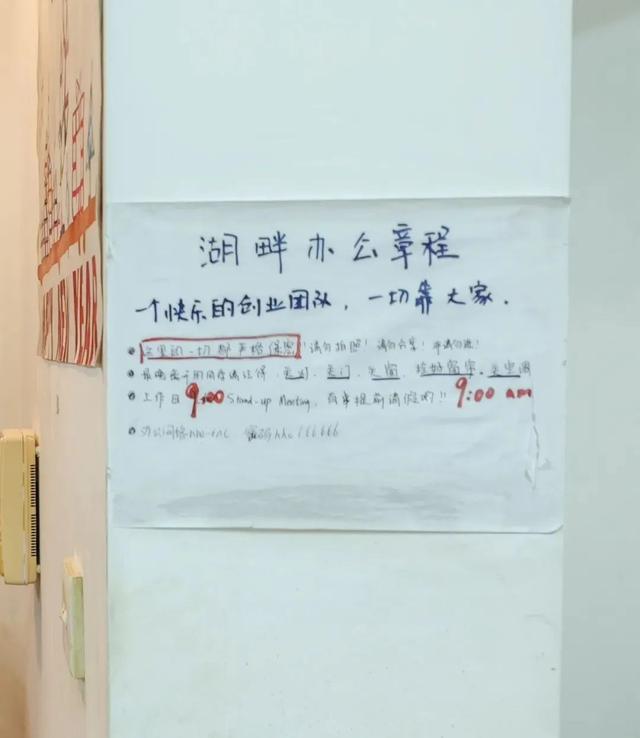 湖畔办公章程
一个快乐的创业团队，一切靠大家．
这里的一切都严格保密！请勿拍照！请勿分享！
最晚离开的同学请记得、关灯、关门、关窗、
工作日 9:00 Stand-up Meeting, 有事提前请假哟!! 9:00 am
办公网络 密码 hhc666666
NEW YEAR